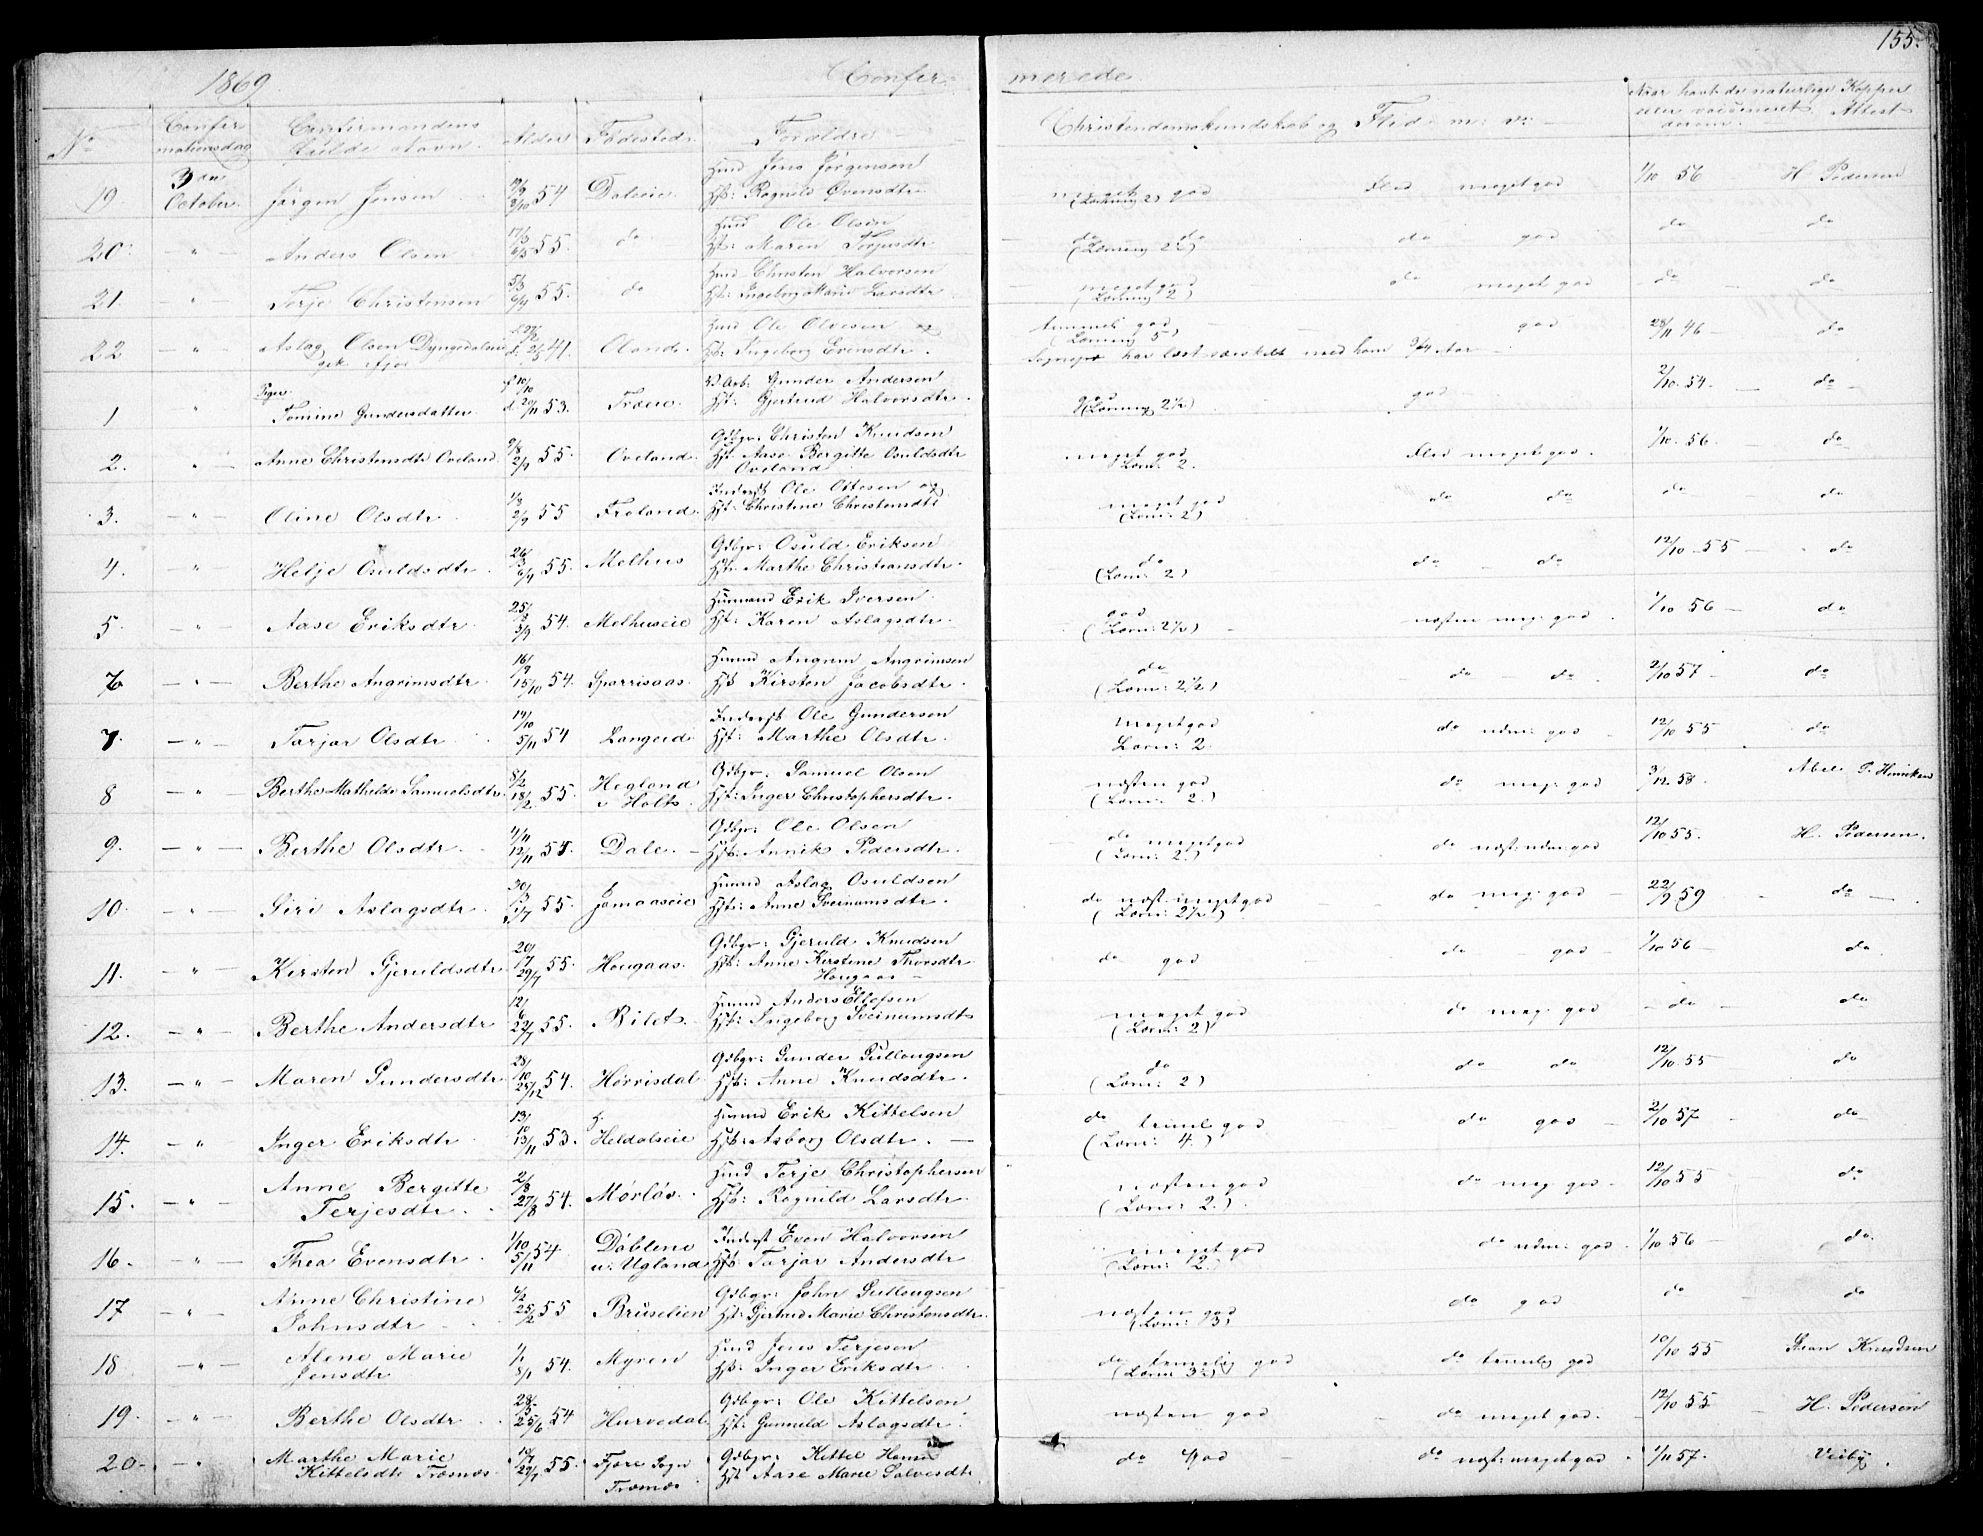 155.
1869 Confir- merede
No Confirmationsdag Confirmandens fulde Navn. Alder Fødested. Forældre Christendomskundskab og Flid m: v: Naar havt de naturlige Kopper eller vaccineret Attest derom.
19 3die October. Jørgen Jensen 54 Daleeie. Huusmd Jens Jørgensen Hst: Ragnild Evensdtr meget god (Lærning 2) Flid meget god 1/10 56 H. Pedersen
20. " Anders Olsen 17/3 6/5 55. do Ole Olsen Hst: Maren Torjusdtr do do (Lærning 2½) do god do do
21 " Terje Christensen 5/3 6/4 55. do Christen Halvorsen Hst: Ingeborg Marie Larsdtr meget god (Lærning 2) do meget god do do
22 " Aslag Olsen Dyngedalseie 41. Oland. Ole Olvesen og Hst: Ingeborg Evensdtr. temmel god (Lærning 5) god 28/11 46 do
Sognepr har læst særskilt med ham 3/4 Aar
Piger
1 " Tomine Gundersdatter. f 10/10 d 20/11 53. Træeie. Gunder Andersen Hst: Gjertrud Halvorsdtr. god (Lærning 2½) god 2/10 54. do
2. " Anne Christensdtr Oveland. 9/8 2/9 55 Oveland. Gdbgr: Christen Knudsen Hst: Aase Bergitte Osuldsdtr Oveland meget god Lærn: 2. Flid meget god. 1/10. 56. do
3. " Oline Olsdtr. 1/8 2/9 55 Froland. Inderst Ole Ottesen og Hst: Christine Christensdtr meget god (Lærn: 2) do do do do
4. " Helje Osuldsdtr 26/3 6/4 55. Melhus Gdbgr: Osuld Eriksen Hst: Marthe Christiansdtr. do (Lærn: 2) do do 12/10 55 do
5. " Aase Eriksdtr. 25/8 3/9 54. Melhuseie Huusmand Erik Iversen Hst: Karen Aslagsdtr. god (Lærn: 2½) næsten meg: god. 1/10 56 do
6 " Berthe Angrimsdtr. 16/9 15/10 54. Sparrisaas. Angrim Angrimsen Hst Kirsten Jacobsdtr. do (Lærn: 2½) do do 2/10 57 do
7. " Tarjar Olsdtr 14/10 5/11 54 Langeid Inderst Ole Gundersen Hst: Marthe Olsdtr. Meget god Lærn: 2. do udm: god 12/10 55 do
8 " Berthe Mathilde Samuelsdtr. 5/2 18/2 55. Hegland v Holts. Gdbgr. Samuel Olsen Hst: Inger Christophersdtr. næsten god (Lærn: 2.) do meg: god 3/12 58 Abel P. Hinrksen
9. " Berthe Olsdtr. 4/11 12/11 54. Dale. Gdbgr: Ole Olsen Hst: Annik Pedersdtr. do meget god (Lærn: 2) do næst: udm: god 12/10 55. H. Pedersen.
10. " Siri Aslagsdtr. 55. Jomaaseie Aslag Osuldsen Hst: Anne Sveinumsdtr. do næst: meget god (Lærn: 2½) do meg: god 22/9 59 do
11. " Kirsten Gjeruldsdtr 20/7 29/7 55. Hougaas. Gdbgr: Gjeruld Knudsen Hst: Anne Kirstine Thorsdtr Hougaas do god do god 1/10 56 do
12. " Berthe Andersdtr 12/6 22/7 55. Bilet. Anders Ellefsen Hst: Ingeborg Sveinumsdtr meget god (Lærn: 2) do meg: god do do
13. " Maren Gundersdtr 28/10 25/12 54. Hørrisdal. Gdbgr: Gunder Gullougsen Hst: Anne Knudsdtr. do (Lærn: 2) do do 12/10 55 do
14. " Inger Eriksdtr. 13/10 13/11 53. Heldalseie Erik Kittelsen Hst: Asborg Olsdtr. do teml god (Lærn: 4.) do god 2/10 57 do
15. " Anne Bergitte Terjesdtr. 2/8 27/8 54. Mørløs. Terje Christophersen Hst: Ragnild Larsdtr. næsten god (Lærn: 2.) do meg god 12/10 55 do
16. " Thea Evensdtr. 1/10 5/11 54 Døblene u: Ugland Inderst Even Halvorsen Hst Tarjar Andersdtr. meget god (Lærn: 2.) do udm: god. 1/10 56 do.
17 " Anne Christine Johnsdtr 4/2 25/2 55 Bruselien Gdbgr: John Gullougsen Hst: Gjertrud Marie Christensdtr. næsten god (Lærn: 3) do god do do
18 " Alene Marie Jensdtr 54. Myren Jens Terjesen Hst: Inger Eriksdtr. do temelig god (Lærn 3½) do temlig god 10/10 55 Stean Knudsen
19. " Berthe Olsdtr. 28/5 25/6 54 Hurvedal. Gdbgr. Ole Kittelsen Hst: Gunnild Aslagsdtr. næsten god do meget god. 12/10 55 H. Pedersen
20. " Marthe Marie Kittelsdtr Tromøs. 55. Fjære Sogn Tromøe Gdbgr: Kittel Hansen Hst Aase Marie Salvesdtr do god do næst: meget god. 1/11 57. Veiby.